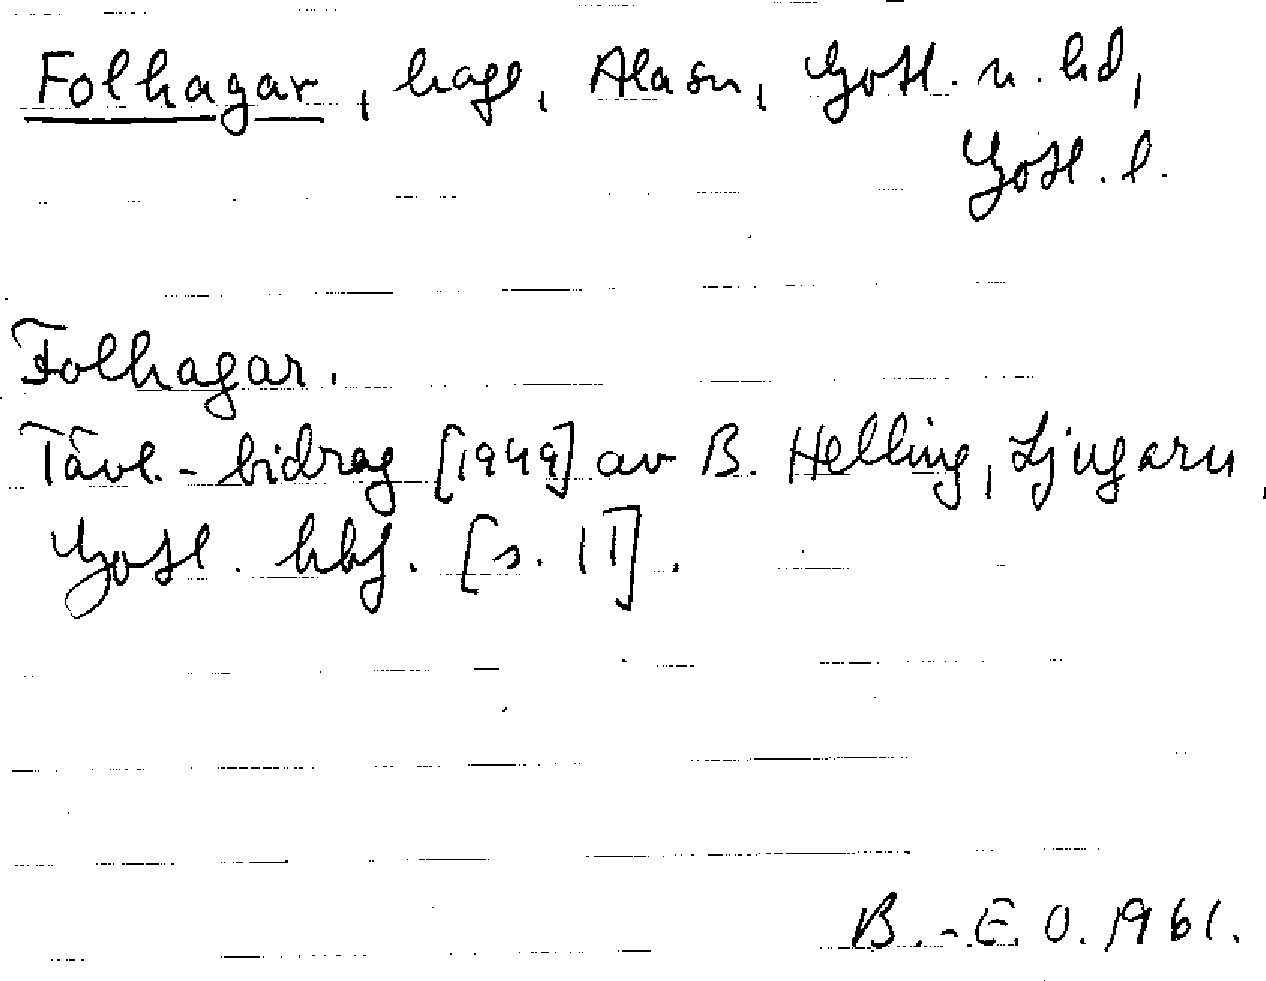 Folhagar, hage, Ala sn, Gotl. n. hd,
Gotl. l.
Folhagar.
Tävl.-bidrag [1949] av B. Helling, Ljugarn,
Gotl. hbf. [s. 11].
B.-E. O. 1961.